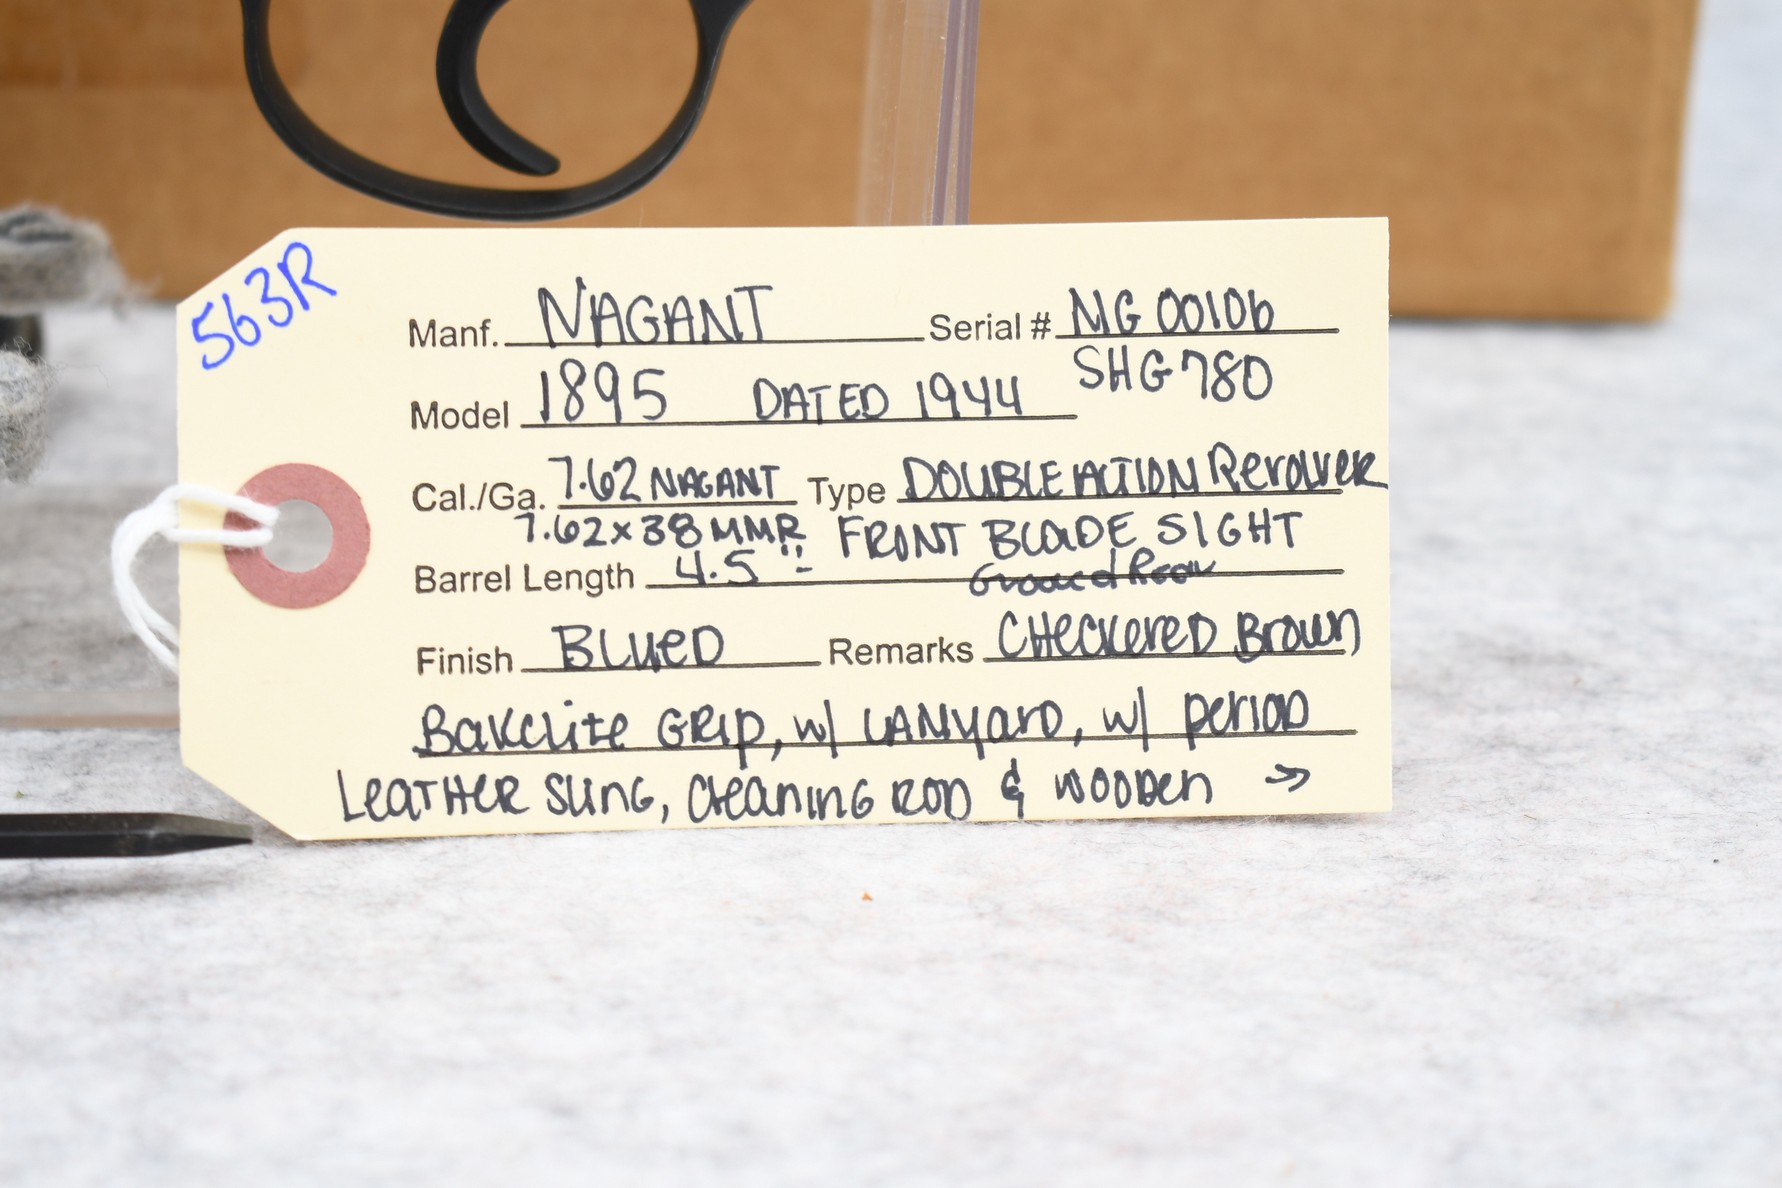 563R
Manf. NAGANT Serial # NG 00106
Model 1895 DATED 1944 SHG780
Cal./Ga. 7.62 NAGANT Type DOUBLE ACTION Revolver
7.62x38 MMR FRONT BLADE SIGHT
Barrel Length 4.5" Groved Rear
Finish BLUED Remarks CHECKERED Brown
Bakelite GRIP, w/ LANYARD, w/ PERIOD
LEATHER SLING, CLEANING ROD & WOODEN →